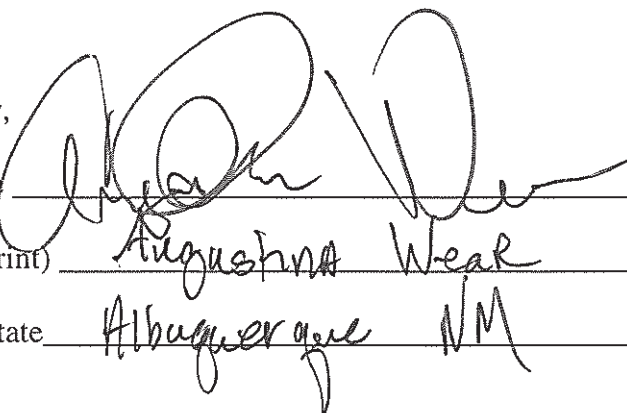 ,
rint) Augustina Wear
tate Albuquerque NM